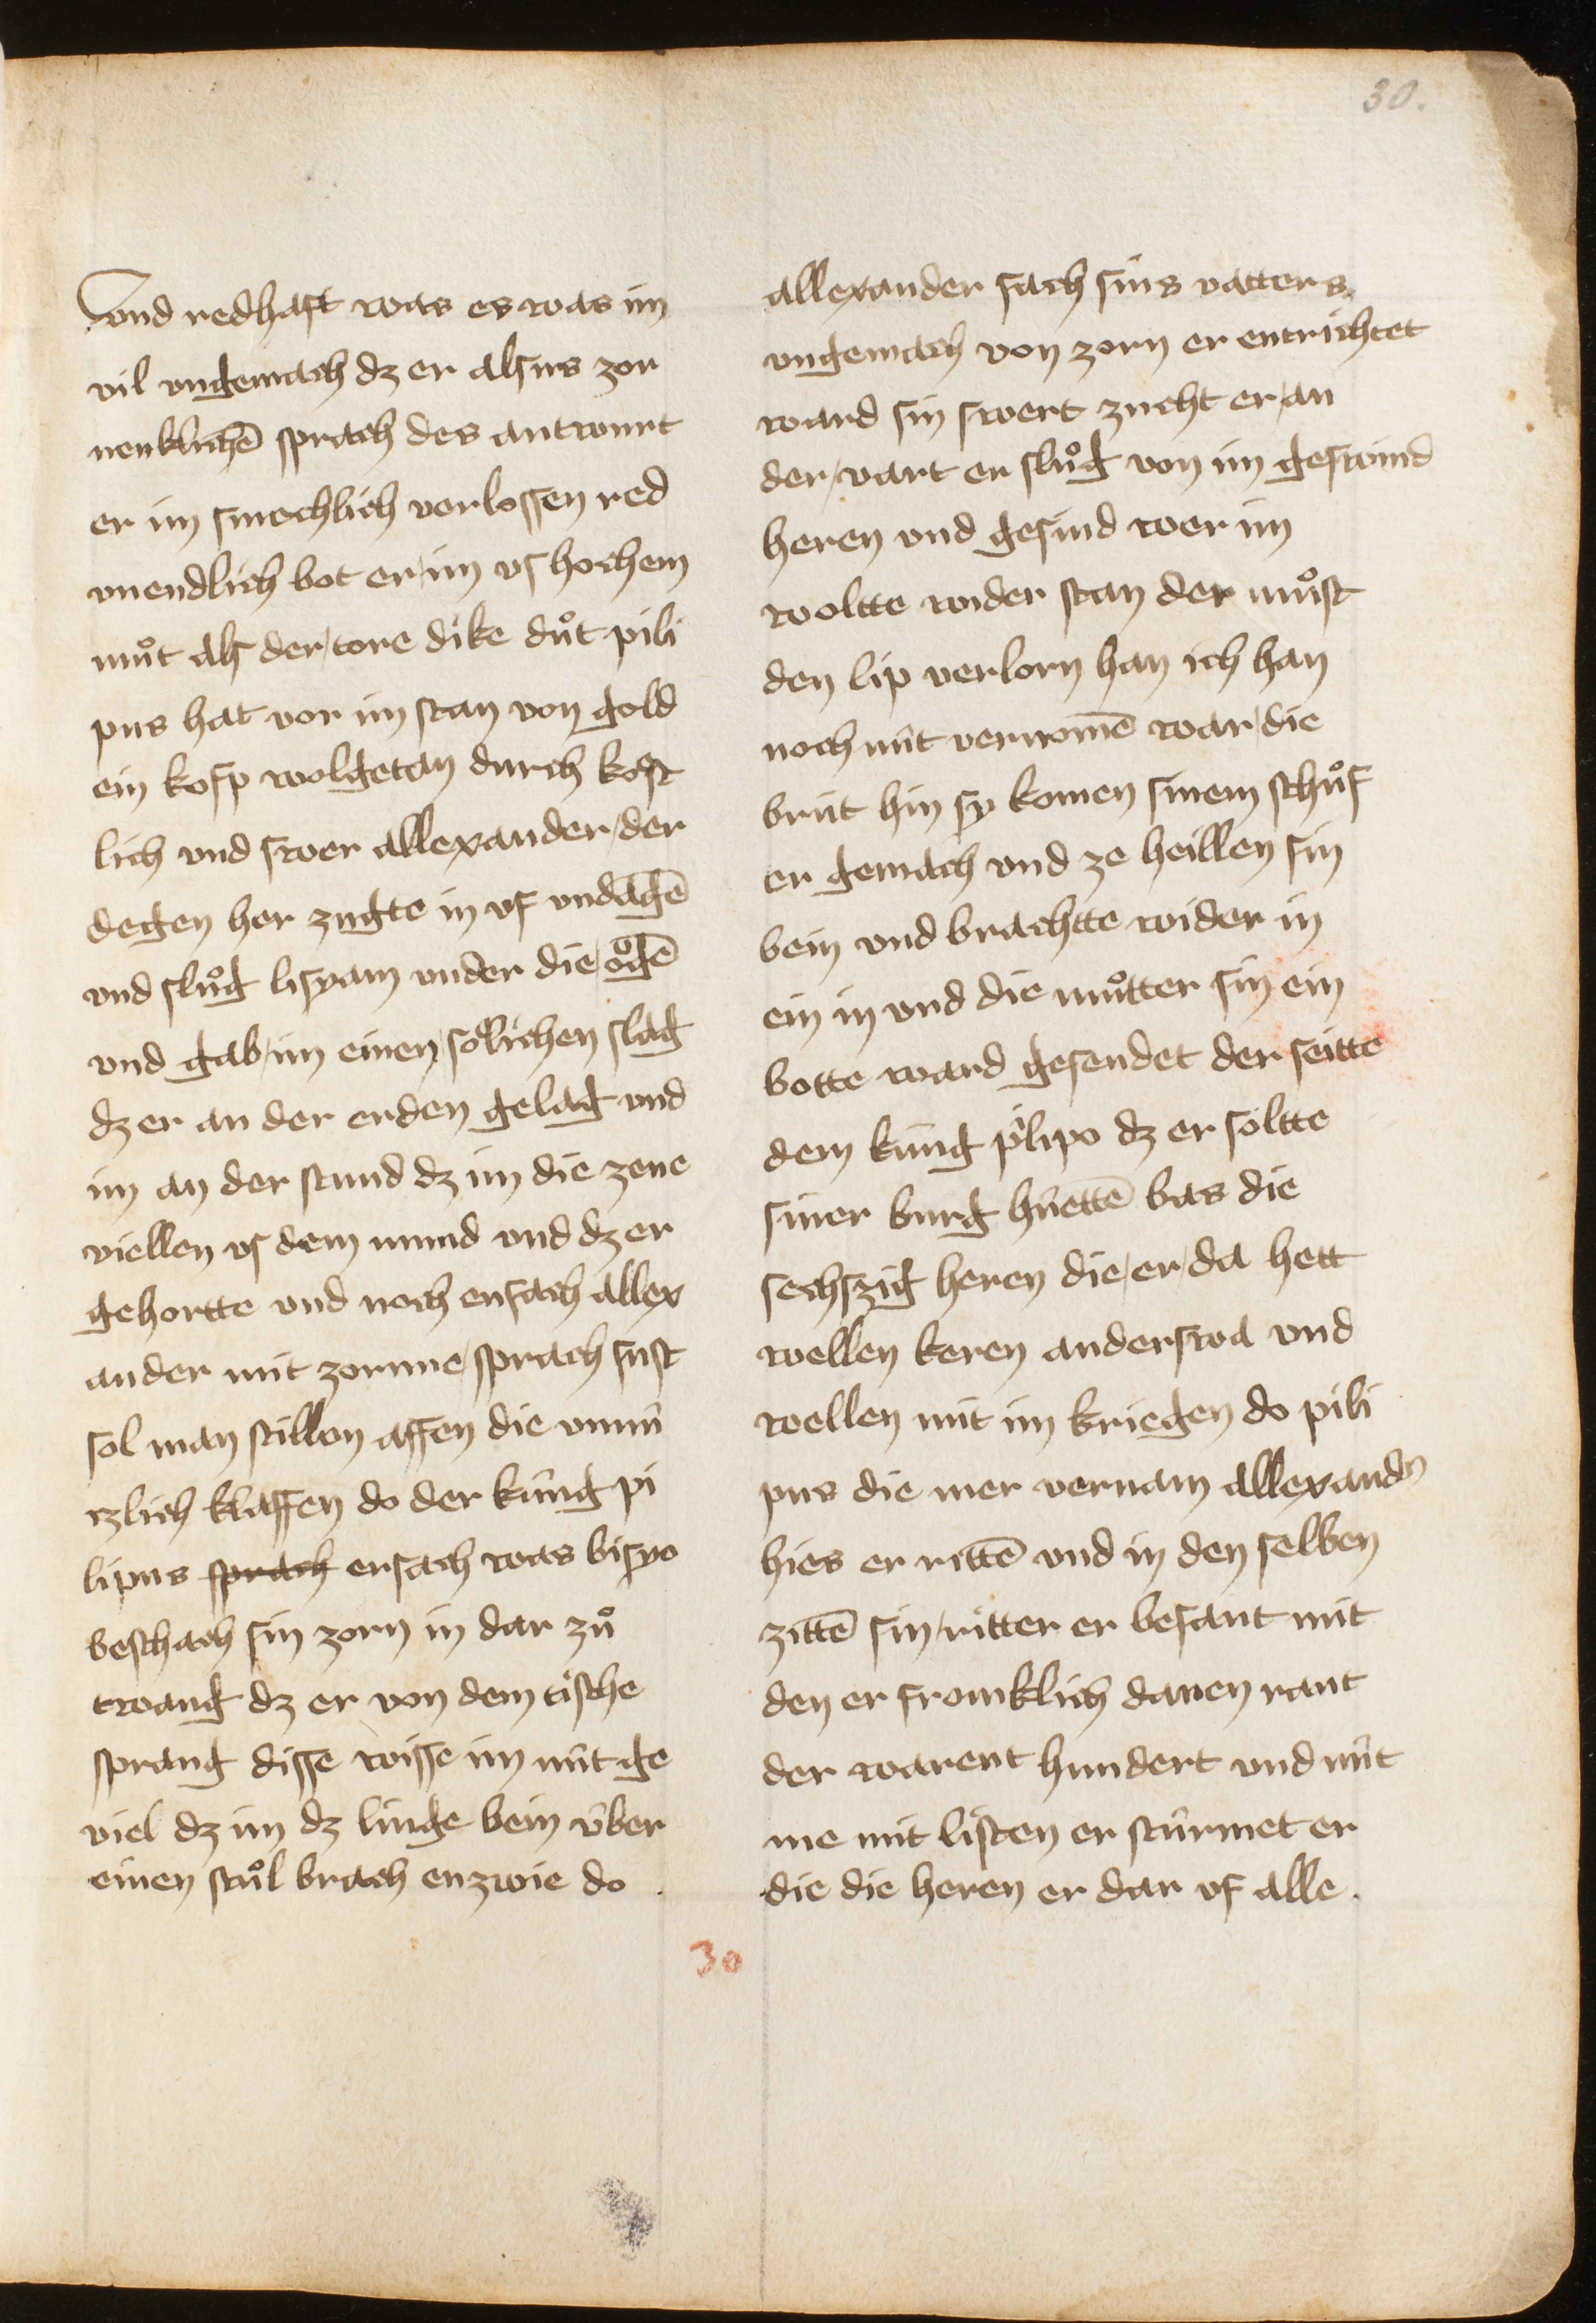 30.
vnd redhaft was es was im
vil vngemach dz er alsus zor
nenklichē sprach des antwurt
er im smechlich verlossen red
vnendlich bot er im vs hochem
můt als der tore dike důt pili
pus hat vor im stan von gold
ein kosp wolgetan durch kost
lich vnd swer allexander der
degen her zugte in vf vndāgē
vnd slůg lisyam vnder die ogē
vnd gab im einen solichen slag
dz er an der erden gelag vnd
im an der stund dz im die zene
viellen vs dem mund vnd dz er
gehortte vnd noch ensach allex
ander mit zornne sprach sust
sol man stillen affen die vnnú
czlich klaffen do der kúng pi
lipus sprach ersach was bisyo
beschach sin zorn in dar zů
twang dz er von dem tische
sprang disse wisse im nút ge
viel dz im dz linge bein v́ber
einen stůl brach enzwie do
allexander sach sins vatters
vngemach von zorn er entrichtet
ward sin swert zucht er an
der vart er slůg von im geswind
heren vnd gesind wer im
woltte wider stan der můst
den lip verlorn han ich han
noch nút vernomē war die
brut hin sy komen sinem schůf
er gemach vnd ze heillen sin
bein vnd brachtte wider in
ein in vnd die můtter sin ein
botte ward gesendet der seitte
dem kúng plipo dz er soltte
siner burg hüettē bas die
sechszig heren die er da hett
wellen keren anderswa vnd
wellen mit im kriegen do pili
pus die mer vernam allexandn
hies er rittē vnd in den selben
zittē sin ritter er besant mit
den er fromklich danen rant
der warent hundert vnd nút
me mit listen er stúrmet er
die die heren er dar vf alle
30